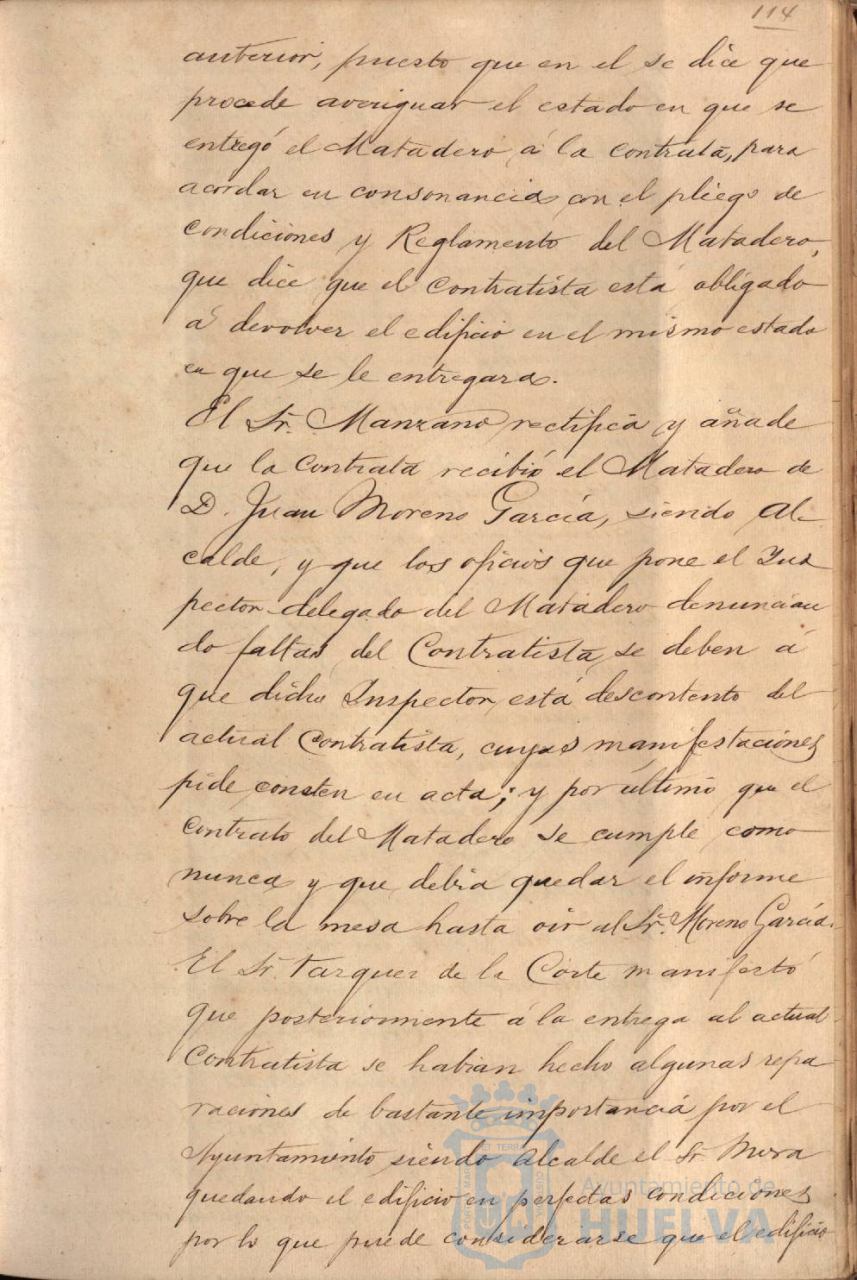 114
anterior, puesto que en el se dice que
procede averiguar el estado en que se
entregó el Matadero á la contrata, para
acordar en consonancia con el pliego de
condiciones y Reglamento del Matadero,
que dice que el contratista está obligado
á devolver el edificio en el mismo estado
en que se le entregara.
El Sr. Manzano rectifica y añade
que la contrata recibió el Matadero de
D. Juan Moreno García, siendo Al-
calde, y que los oficios que pone el Ins
pector delegado del Matadero denuncian
do faltas del Contratista, se deben á
que dicho Inspector está descontento del
actual Contratista, cuyas manifestaciones
pide consten en acta; y por último que el
contrato del Matadero se cumple como
nunca y que debia quedar el informe
sobre la mesa hasta oir al Sr. Moreno García.
El Sr. Vazquez de la Corte manifestó
que posteriormente á la entrega al actual
Contratista se habian hecho algunas repa-
raciones de bastante importancia por el
Ayuntamiento siendo Alcalde el Sr Mora
quedando el edificio en perfectas condiciones
por lo que puede considerarse que el edificio
Ayuntamiento de
HUELVA